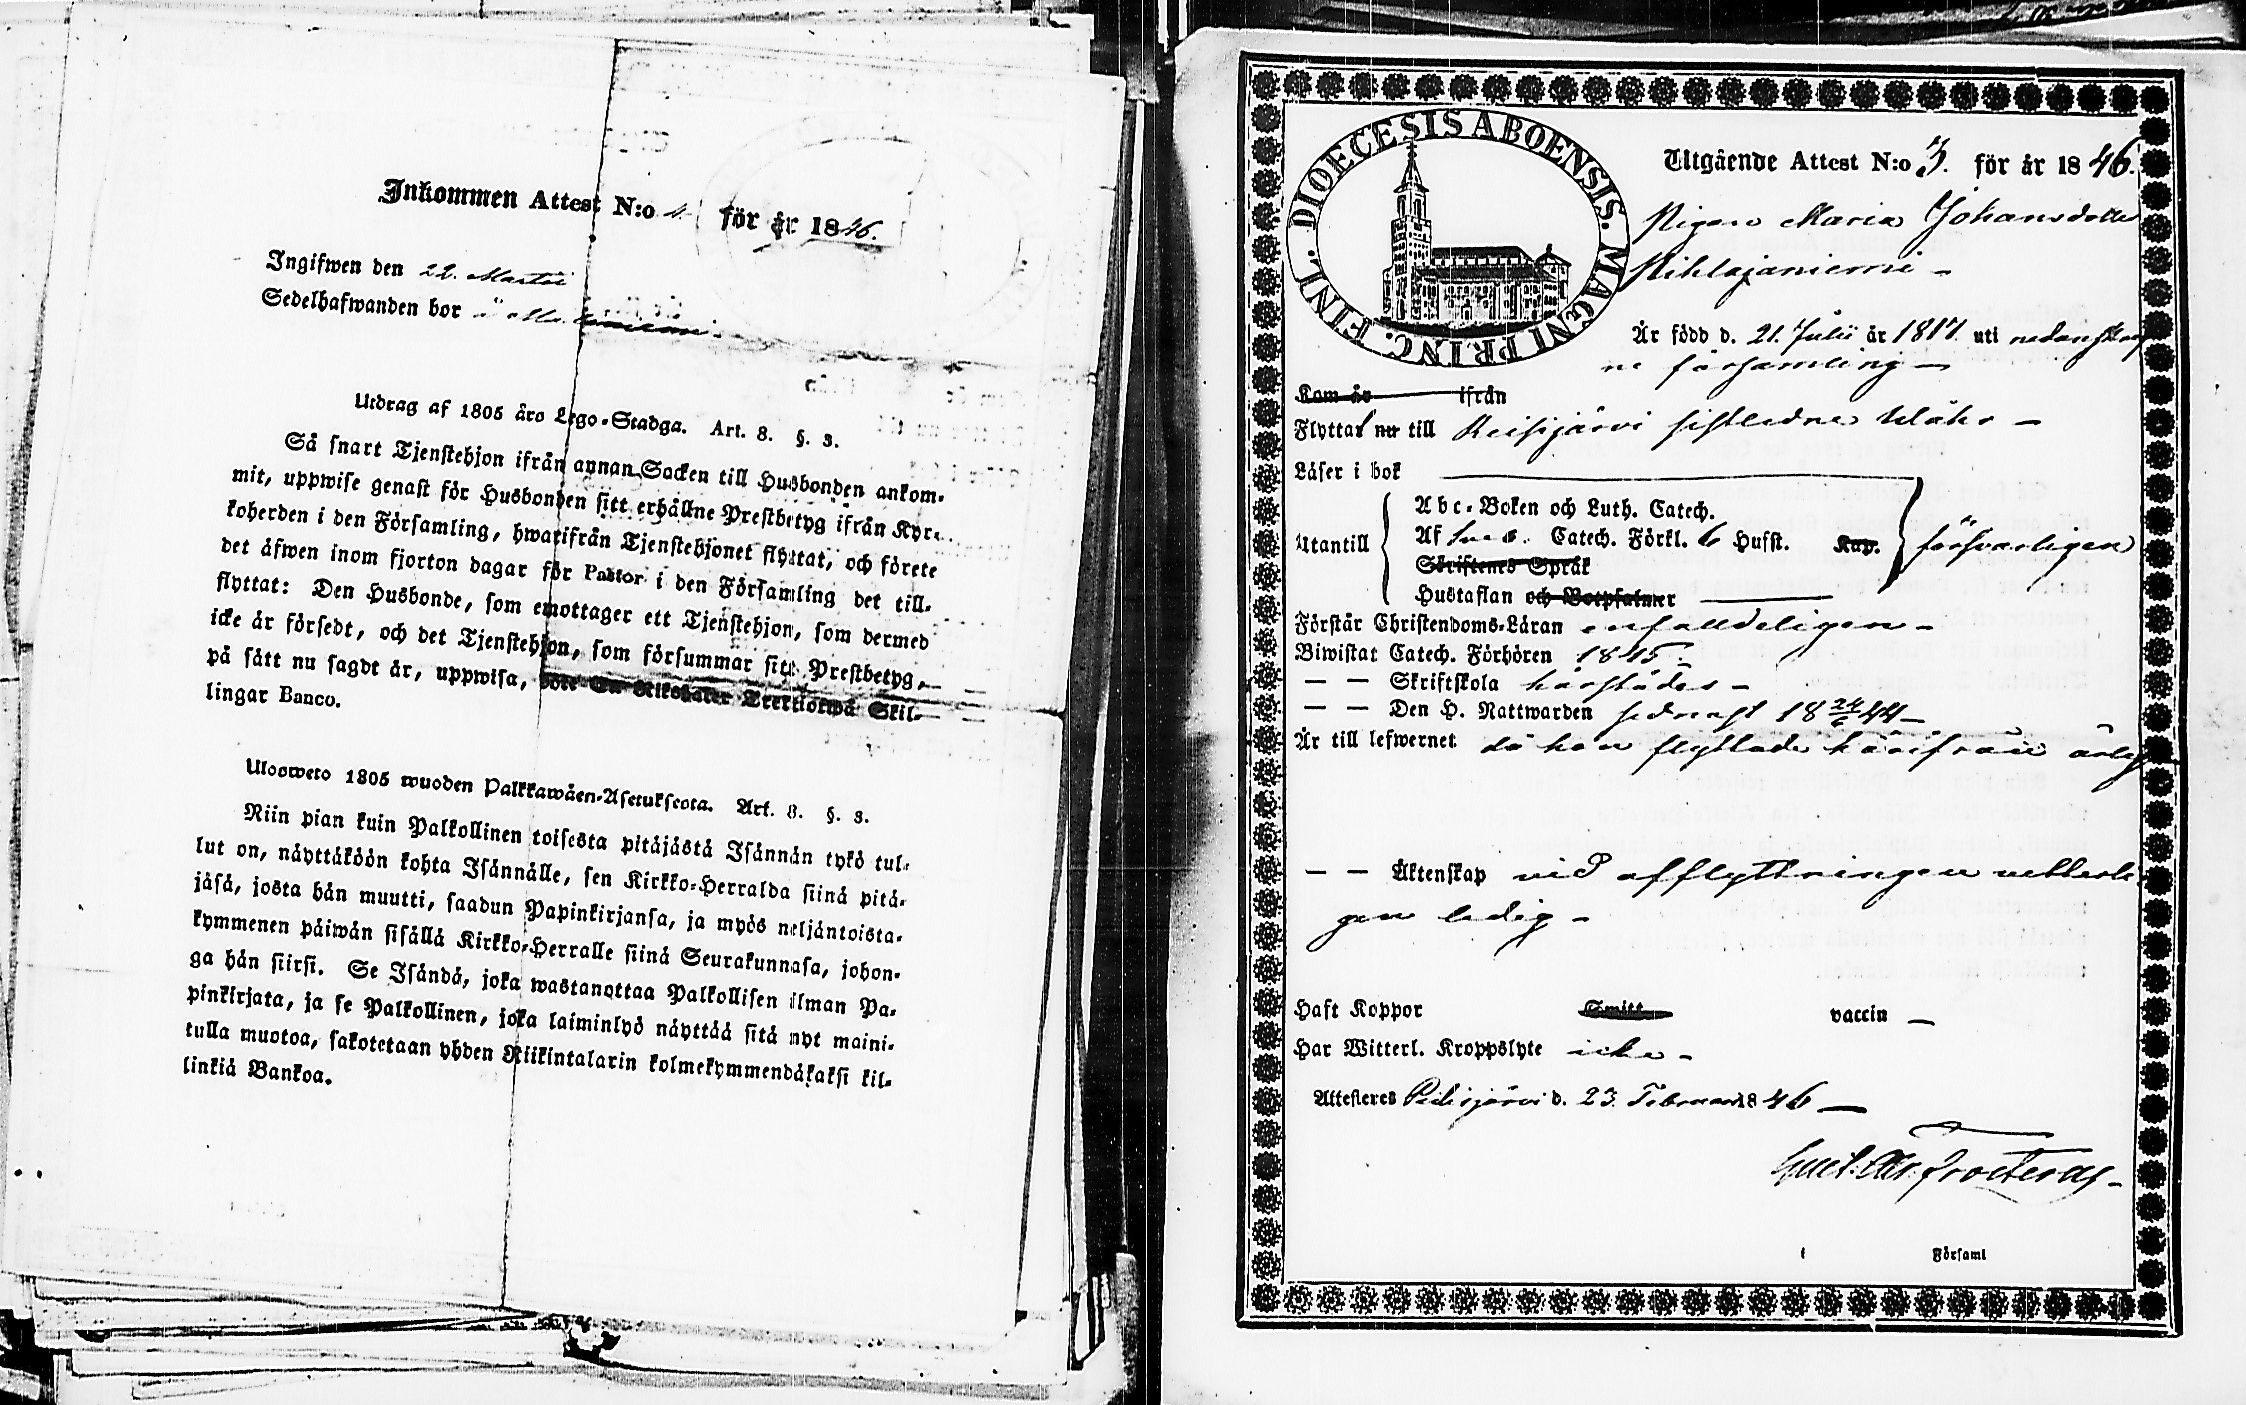 Inkommen Attest N:o 4. för år 1846.
Ingifwen den 22. Martii
Sedelhafwanden bor
Utdrag af 1805 års Lego-Stadga. Art. 8. §. 3.
Så snart Tjenstehjon ifrån annan Socken till Husbonden ankom-
mit, uppwise genast för Husbonden sitt erhållne Prestbetyg ifrån Kyr-
koherden i den Församling, hwarifrån Tjenstehjonet flyttat, och förete
det äfwen inom fjorton dagar för Pastor i den Församling det till-
flyttat: Den Husbonde, som emottager ett Tjenstehjon, som dermed
icke är försedt, och det Tjenstehjon, som försummar sitt Prestbetyg,
på sätt nu sagdt är, uppwisa, böte En Riksdaler Trettiotwå Skil-
lingar Banco.
Ulosweto 1805 wuoden Palkkawäen-Asetuksesta. Art. 8. §. 3.
Niin pian kuin Palkollinen toisesta pitäjästä Isännän tykö tul-
lut on, näyttäköön kohta Isännälle, sen Kirkko-Herralda siinä pitä-
jäsä, josta hän muutti, saadun Papinkirjansa, ja myös neljäntoista-
kymmenen päiwän sisällä Kirkko-Herralle siinä Seurakunnasa, johon-
ga hän siirsi. Se Isändä, joka wastanottaa Palkollisen ilman Pa-
pinkirjata, ja se Palkollinen, joka laiminlyö näyttää sitä nyt maini-
tulla muotoa, sakotetaan yhden Riikintalarin kolmekymmendäkaksi kil-
linkiä Bankoa.
DIOECESIS ABOENSIS. MAGNI PRINC. FINL.
Utgående Attest N:o 3. för år 1846.
Pigan Maria Johansdotter
Pihlajaniemi
Är född d. 21. Julii år 1817. uti nedanskref
ne församling
Kom år ifrån
Flyttat nu till Reisjärvi sistledne
Läser i bok
Utantill
Abc-Boken och Luth. Catech.
Af Catech. Förkl. 6 Hufst. Kap.
Skriftenes Språk
Hustaflan och Botpsalmer
försvarligen
Förstår Christendoms-Läran enfalldeligen
Biwistat Catech. Förhören 1845
— — Skriftskola härstädes
— — Den H. Nattwarden sednast 18 24/6 44
Är till lefwernet då hon flyttade härifrån ärlig
— — Äktenskap vid afflyttningen vetterli
gen ledig
Haft Koppor Smitt vaccin
Har Witterl. Kroppslyte icke
Attesteres Pidisjärvi d. 23 Februari 1846
Gust. Frosterus
i Församl